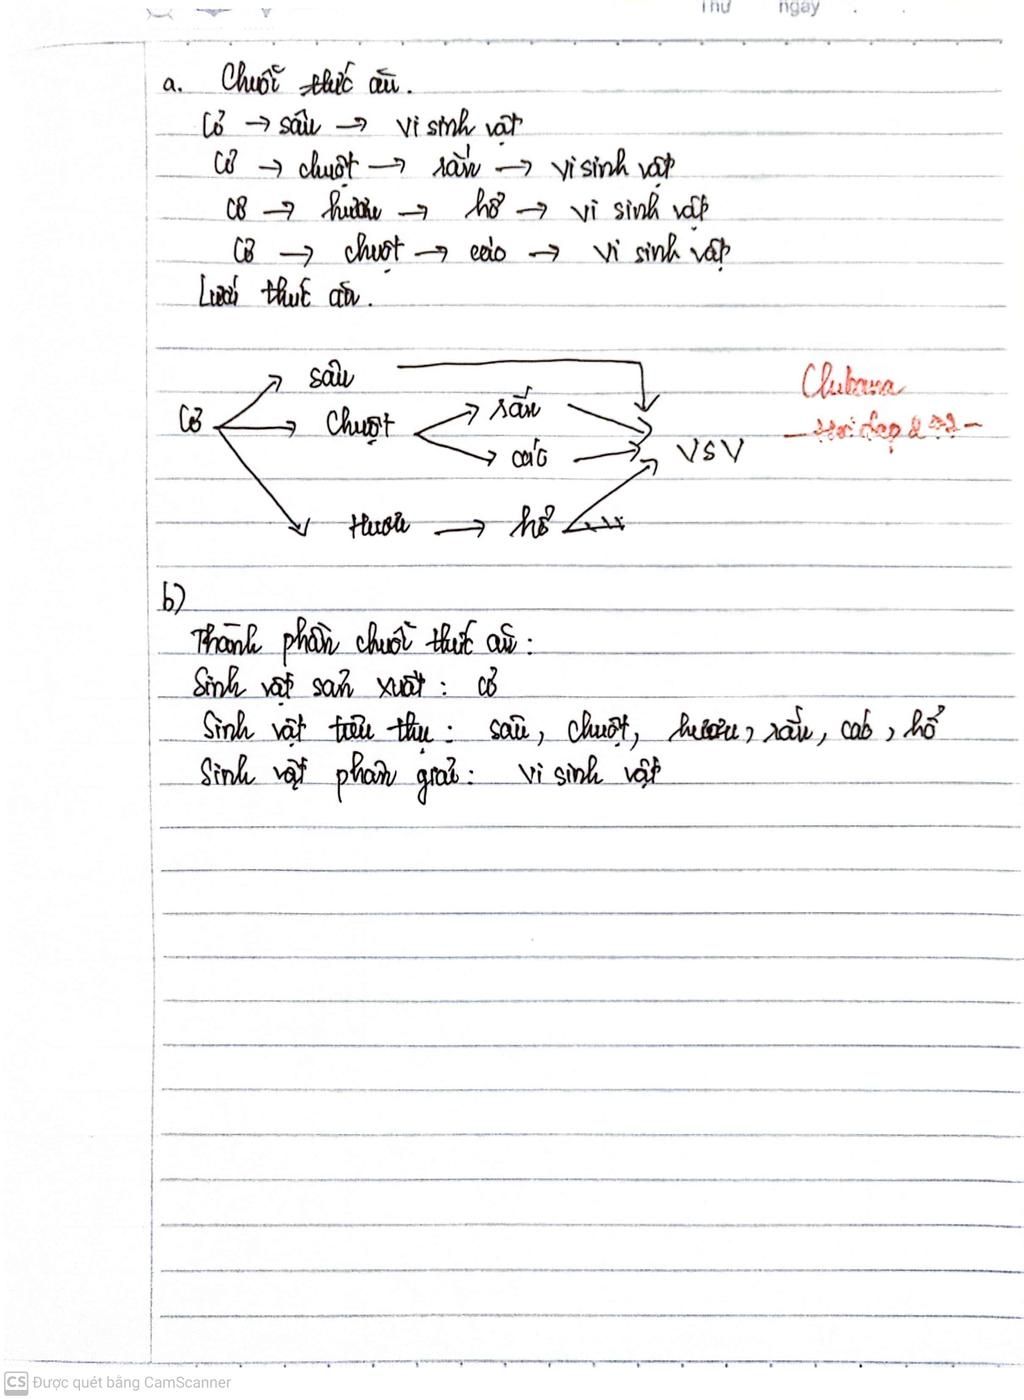 Thứ ngày . .
a. Chuỗi thức ăn.
Cỏ → sâu → vi sinh vật
Cỏ → chuột → rắn → vi sinh vật
Cỏ → hươu → hổ → vi sinh vật
Cỏ → chuột → cáo → vi sinh vật
Lưới thức ăn.
sâu
Cỏ chuột rắn
cáo VSV
Hươu → hổ
b)
Thành phần chuỗi thức ăn:
Sinh vật sản xuất: cỏ
Sinh vật tiêu thụ: sâu, chuột, hươu, rắn, cáo, hổ
Sinh vật phân giải: vi sinh vật
CS Được quét bằng CamScanner